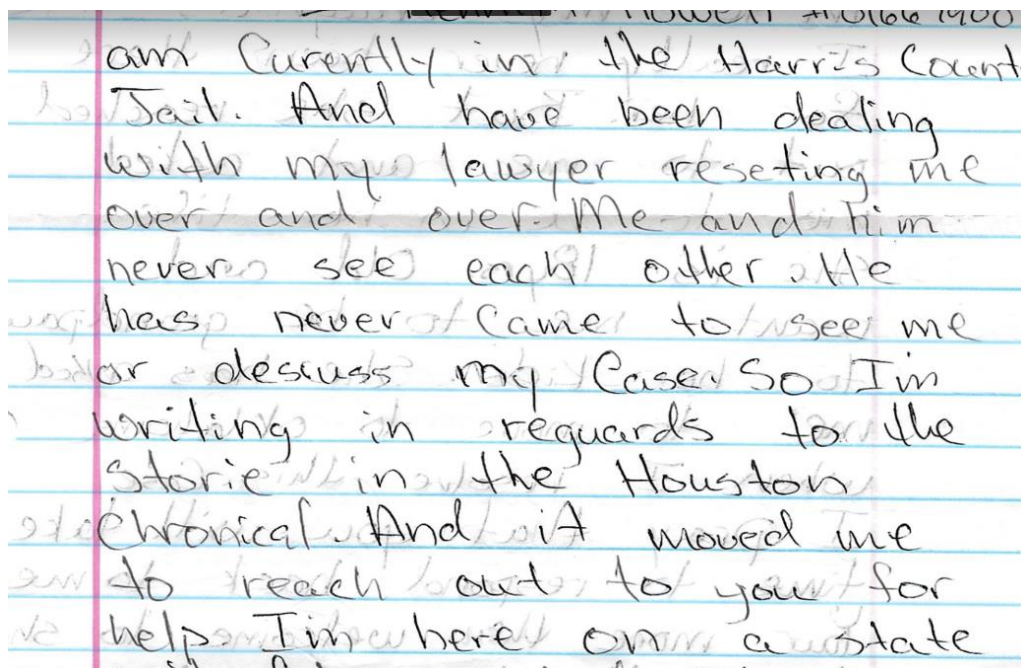 Howell #0166 1900
am Curently in the Harris Count
Jail. And have been dealing
with my lawyer reseting me
over and over. Me and him
never see each other. He
has never came to see me
or descuss my Case. So I'm
writing in reguards to the
Storie in the Houston
Chronical. And it moved me
to reach out to you for
help. I'm here on a state